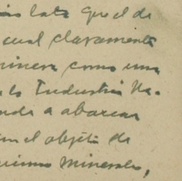 lato que el de
cual claramente
minera como una
la Industria Na-
a abarcar
en el objeto de
Minerales,